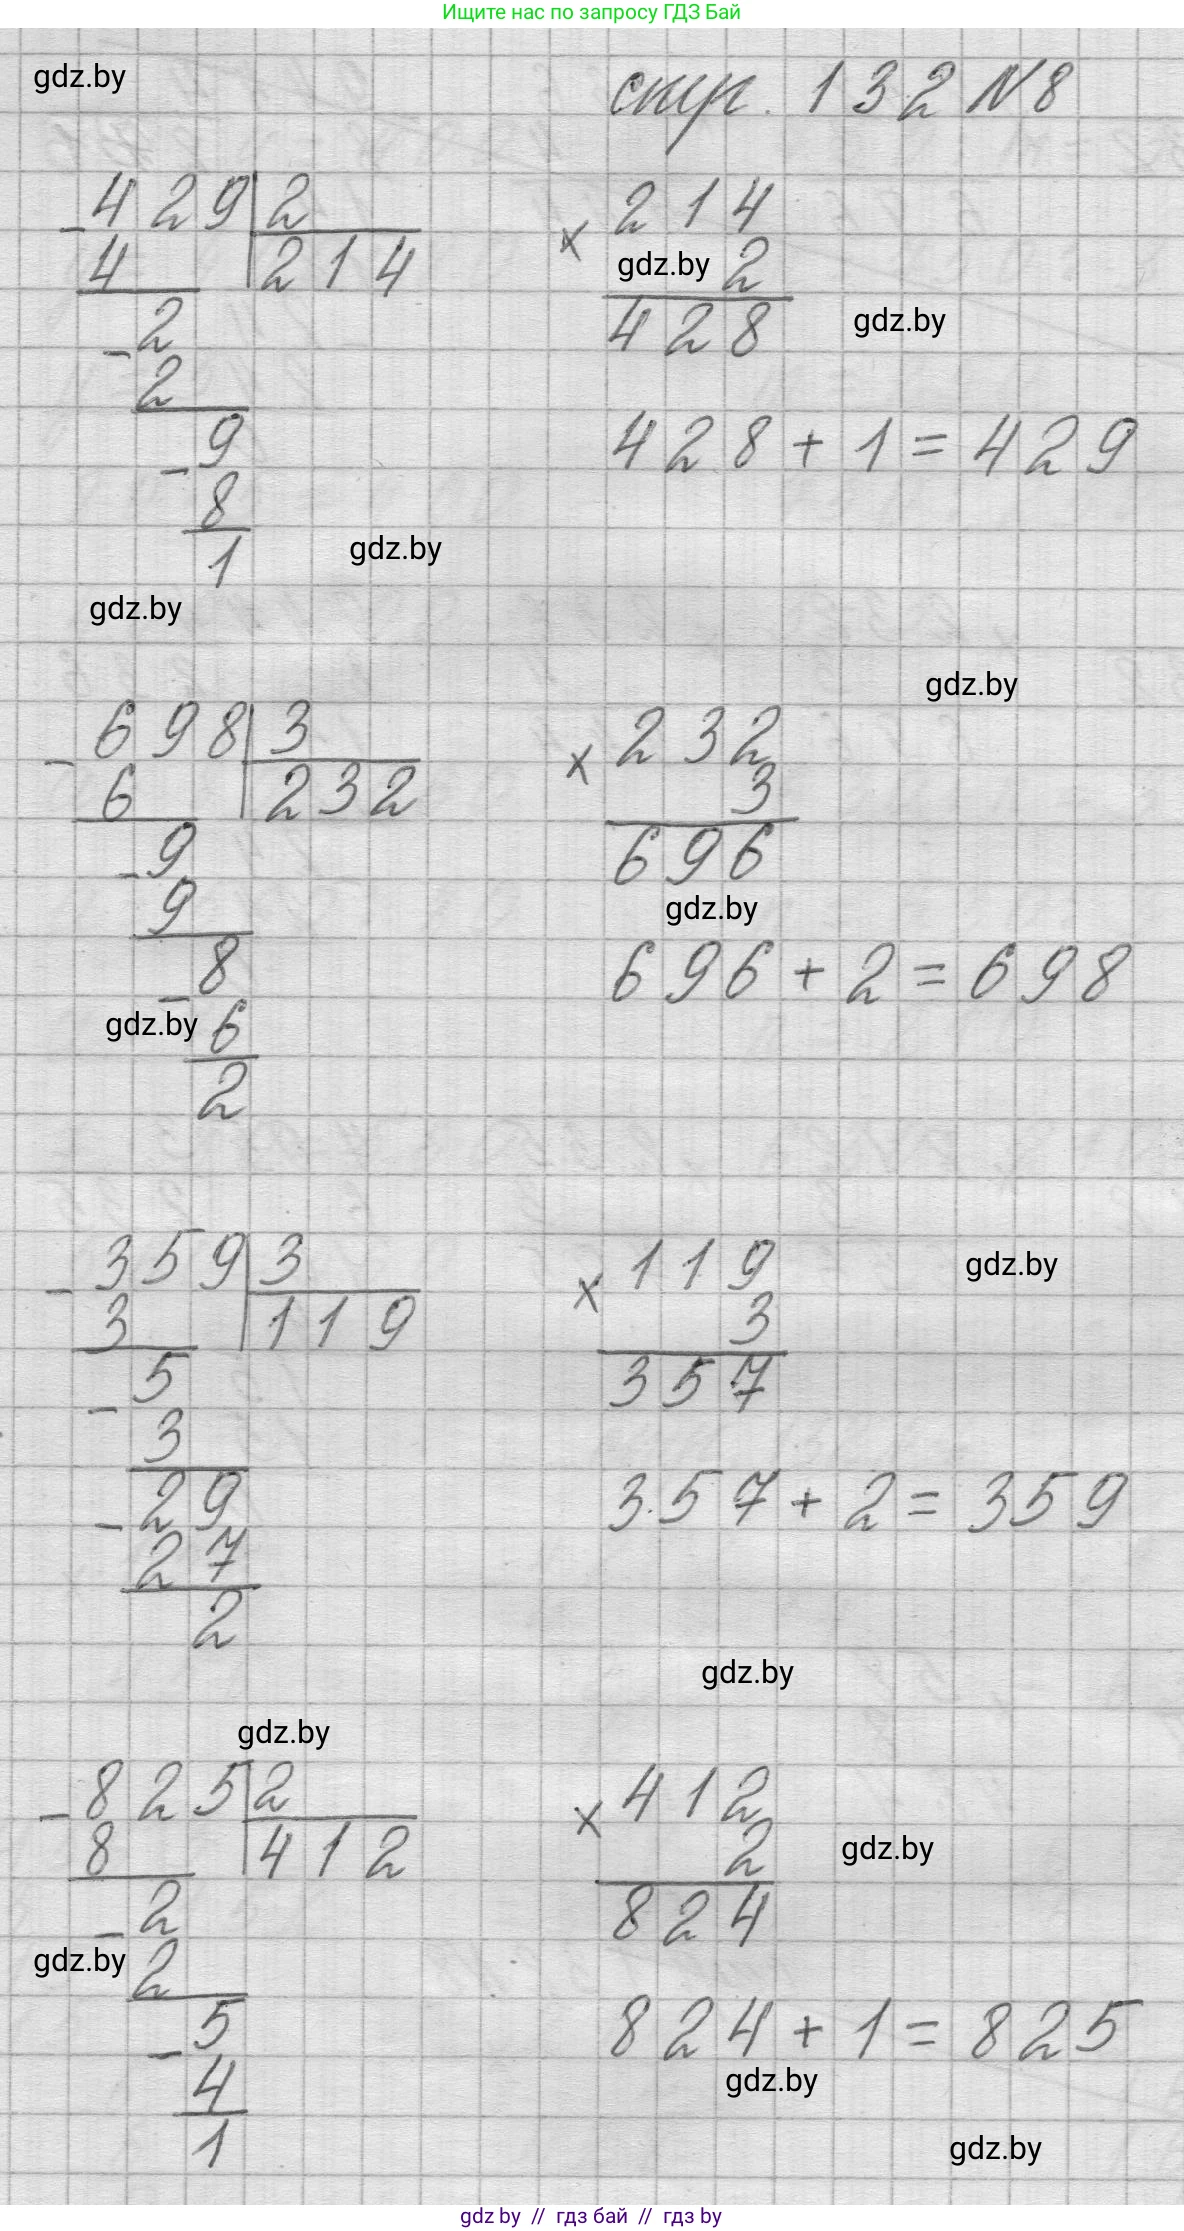 Ищите нас по запросу ГДЗ Бай
gdz.by
стр. 132 №8
- 429 | 2
4 | 214
- 2
2
- 9
8
1
× 214
gdz.by 2
428
gdz.by
428 + 1 = 429
gdz.by
gdz.by
gdz.by
- 698 | 3
6 | 232
- 9
9
- 8
gdz.by 6
2
× 232
3
696
gdz.by
696 + 2 = 698
- 359 | 3
3 | 119
- 5
3
- 29
27
2
× 119
3
357
gdz.by
357 + 2 = 359
gdz.by
gdz.by
- 825 | 2
8 | 412
- 2
gdz.by 2
- 5
4
1
× 412
2
824
gdz.by
824 + 1 = 825
gdz.by
gdz.by
gdz by // гдз бай // гдз by